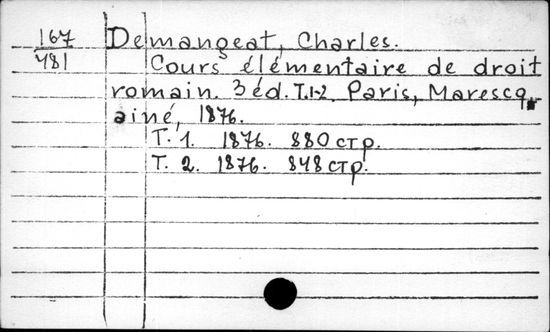 167 Demangeat, Charles.
481 Cours élémentaire de droit
romain. 3 éd. T.1-2. Paris, Marescq,
ainé, 1876.
T. 1. 1876. 880 стр.
T. 2. 1876. 848 стр.